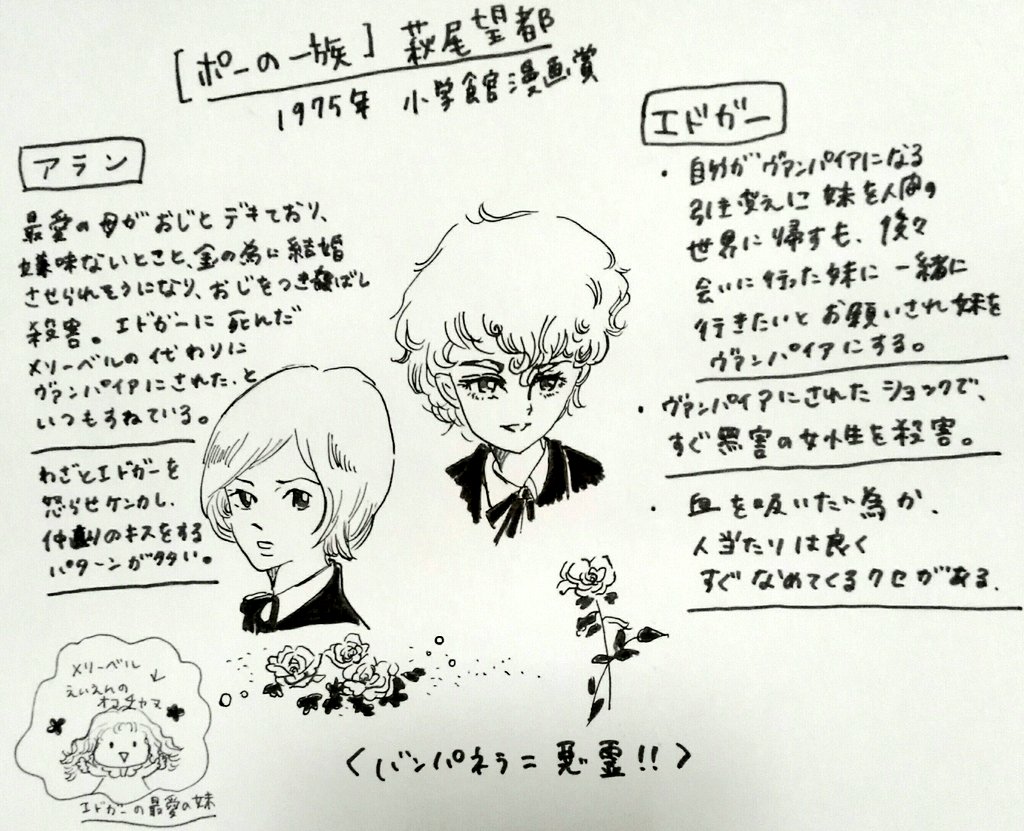 [ポーの一族] 萩尾望都
1975年 小学館漫画賞
アラン
最愛の母がおじとデキており、
嫌味ないとこと、金の為に結婚
させられそうになり、おじをつき飛ばし
殺害。エドガーに死んだ
メリーベルの代わりに
ヴァンパイアにされた、と
いつもすねている。
わざとエドガーを
怒らせケンカし、
仲直りのキスをする
パターンが多い。
エドガー
・自分がヴァンパイアになる
引き変えに妹を人間の
世界に帰すも、後々
会いに行った妹に一緒に
行きたいとお願いされ妹を
ヴァンパイアにする。
・ヴァンパイアにされたショックで、
すぐ無害の女性を殺害。
・血を吸いたい為か、
人当たりは良く
すぐなめてくるクセがある。
メリーベル
えいえんの
オコチャマ
エドガーの最愛の妹
<バンパネラ=悪霊!!>